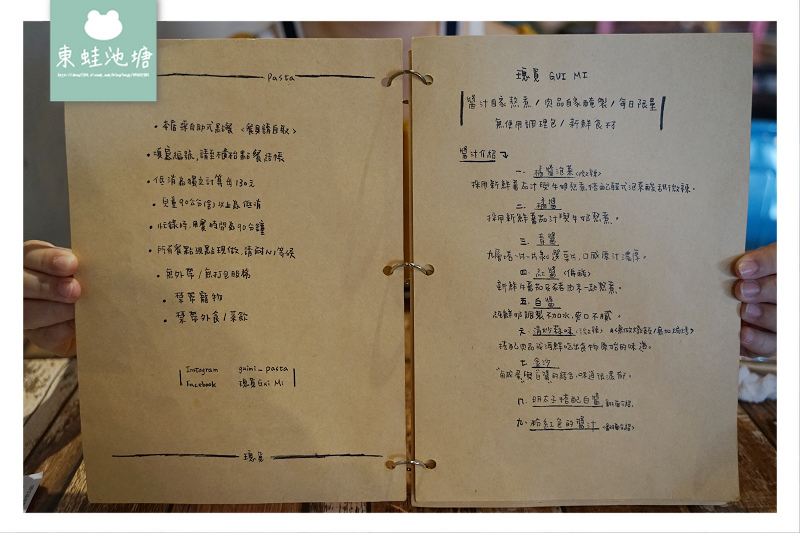 東蛙池塘
Pasta
• 本店採自助式點餐 <餐具請自取>
• 填寫編號,請至櫃枱點餐結帳
• 低消為獨立計算每人130元
• 兒童90公分(含)以上為低消
• 忙碌時,用餐時間為90分鐘
• 所有餐點現點現做,請耐心等候
• 無外帶/無打包服務
• 禁帶寵物
• 禁帶外食/菜飲
Instagram guimi_pasta
Facebook 瑰覓Gui Mi
瑰覓
瑰覓 GUI MI
醬汁自家熬煮/肉品自家醃製/每日限量
無使用調理包/新鮮食材
醬汁介紹
一. 橘醬泡菜(微辣)
採用新鮮蕃茄汁與牛奶熬煮,搭配韓式泡菜酸甜微辣。
二. 橘醬
採用新鮮蕃茄汁與牛奶熬煮。
三. 青醬
九層塔、
口感厚汁濃厚。
四. 紅醬(偏酸)
新鮮牛蕃茄
一起熬煮。
五. 白醬
純鮮奶調製不加水,爽口不膩。
六. 清炒蒜味(微辣)
搭配肉品或海鮮吃出食物原始的味道。
七. 金沙
"鹹蛋與白醬"的結合,味道很濃郁。
八. 明太子搭配白醬
九. 粉紅色的醬汁